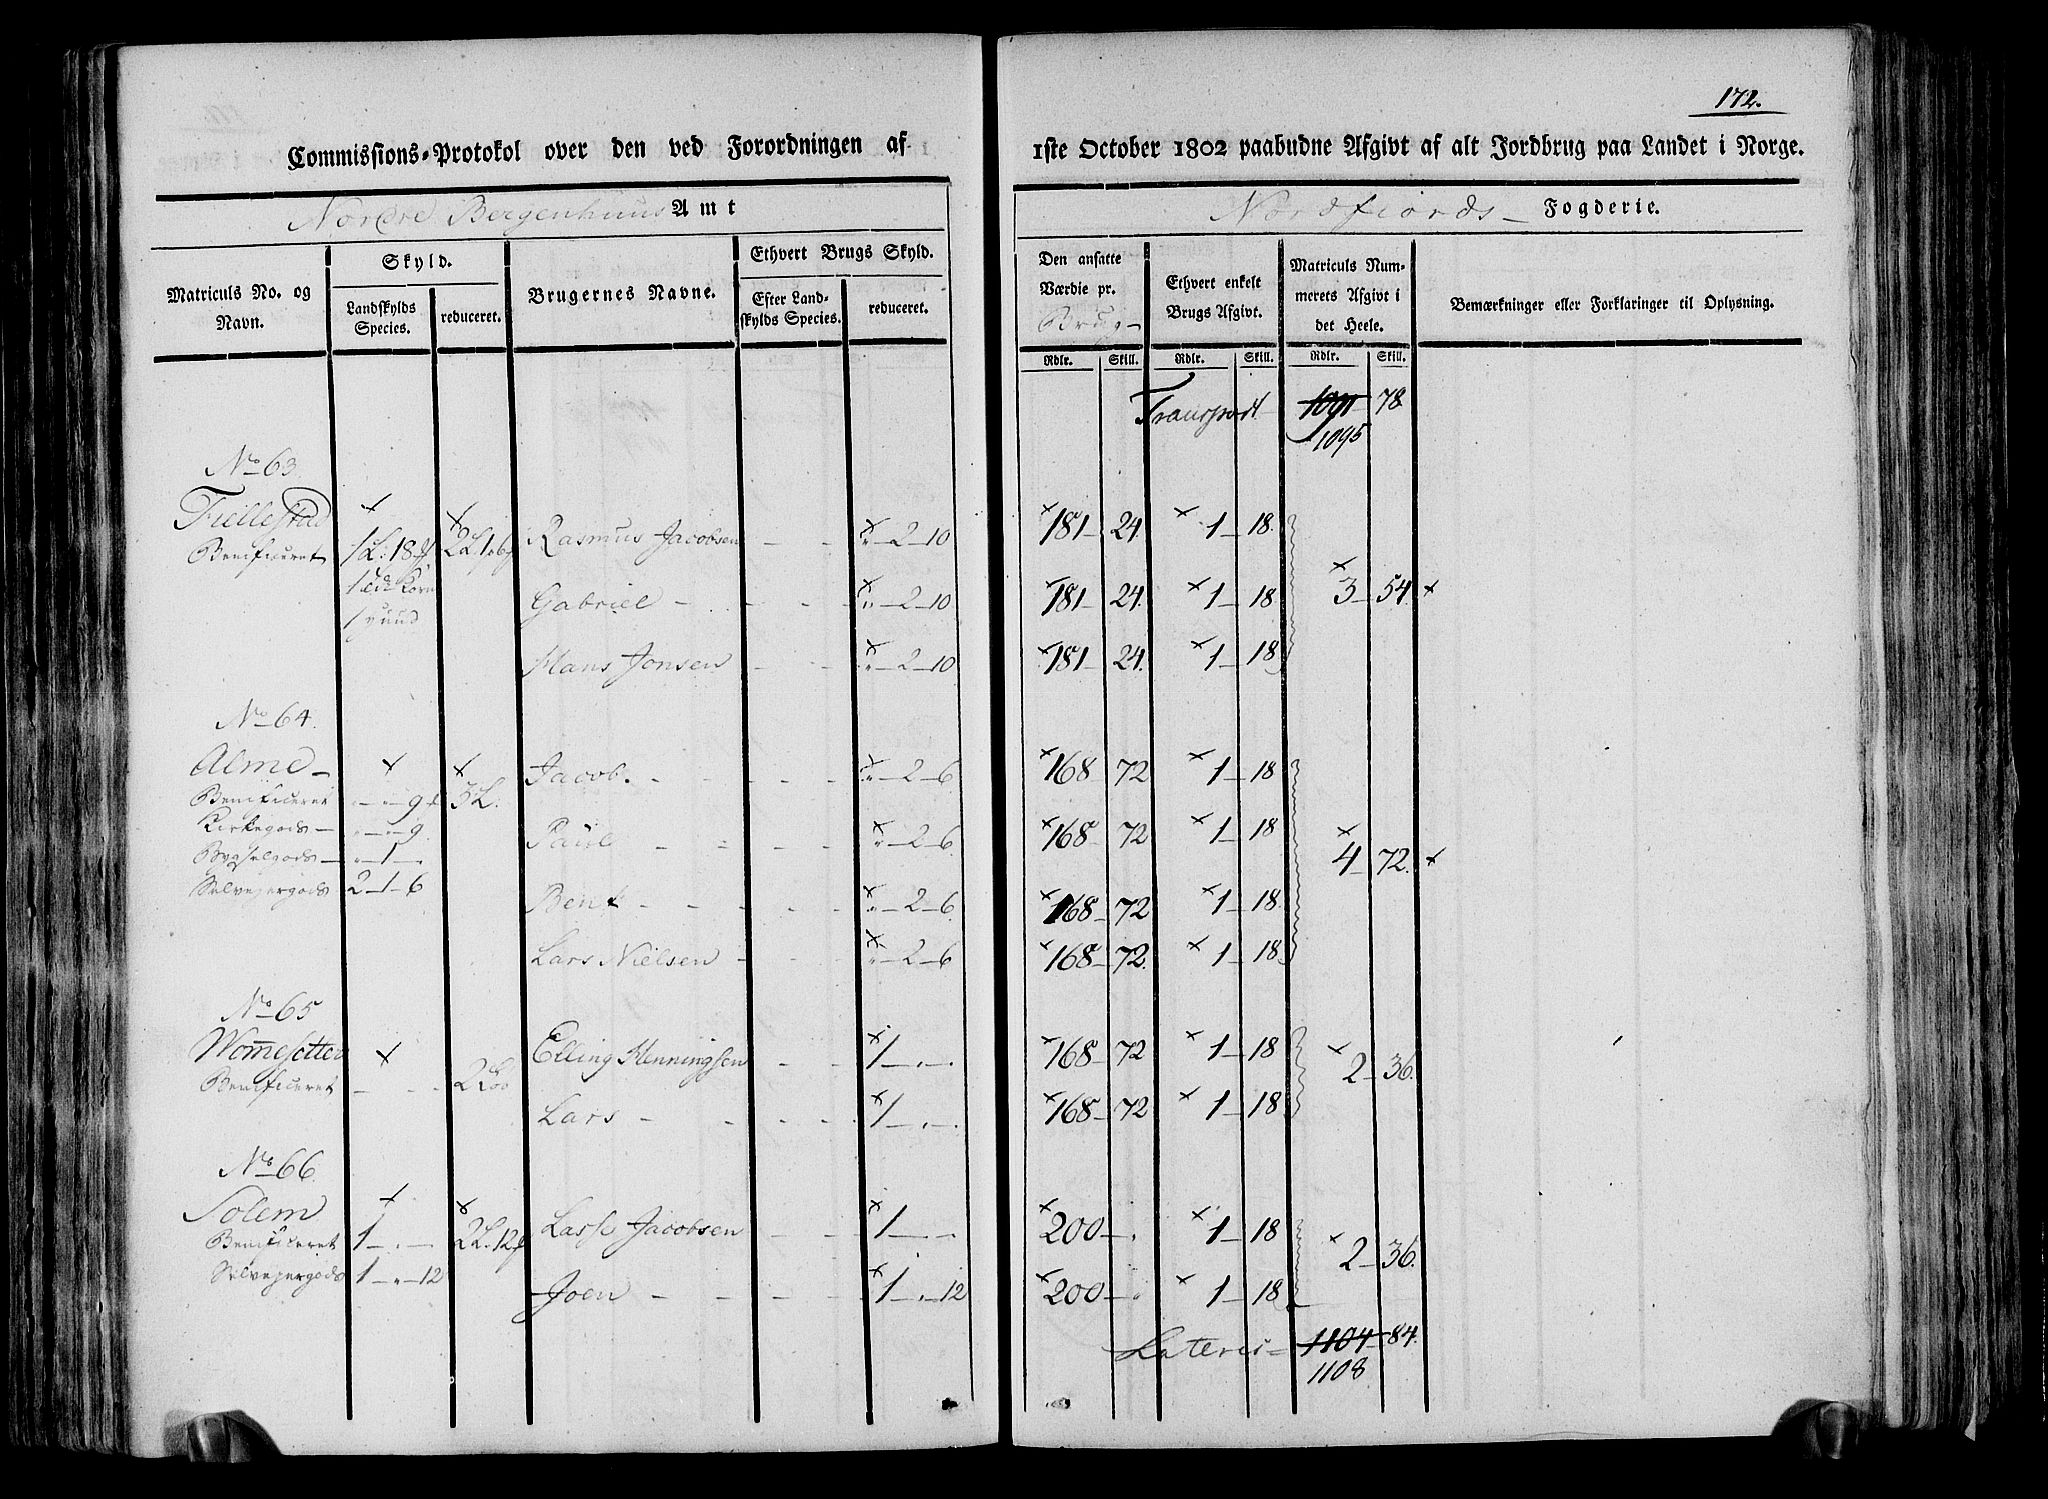 172.
Commissions-Protokol over den ved Forordningen af 1ste October 1802 paabudne Afgivt af alt Jordbrug paa Landet i Norge.
Nordre Bergenhuus Amt Nordfiords Fogderie.
Matriculs No. og Navn. Skyld. Landskylds Species. reduceret. Brugernes Navne. Ethvert Brugs Skyld. Efter Landskylds Species. reduceret. Den ansatte Værdie pr. Brug Ethvert enkelt Brugs Afgivt. Matriculs Nummerets Afgivt i det Heele. Bemærkninger eller Forklaringer til Oplysning.
Rdlr. Skill. Rdlr. Skill. Rdlr. Skill.
Transport 1091 78
1095
No 63
Fiellestad
Beneficeret 1 L: 18 Rasmus Jacobsen - - " - 2 - 10 181 - 24. 1 - 18.
Gabriel - - - " - 2 - 10 181 - 24. 1 - 18. 3 - 54.
1 Huud
Hans Jonsen - - " - 2 - 10 181 - 24. 1 - 18
No 64.
Alme - 3 L. Jacob. - - - - " - 2 - 6 168 - 72 1 - 18
Beneficeret " - " - 9
Kirkegods - " - " - 9. Paul - - - " - 2 - 6. 168 - 72 1 - 18 4 - 72.
Bygselgods - " - 1 - "
Selveyergods 2 - 1 - 6 Bent - - - - " - 2 - 6. 168 - 72 1 - 18.
Lars Nielsen - - " - 2 - 6 168 - 72. 1 - 18
No 65
Wommesetter Elling Henningsen - - 1 - " - 168 - 72 1 - 18 2 - 36.
Beneficeret - - - Lars - - - - 1 - " - 168 - 72 1 - 18
No 66.
Solem
Beneficeret 1 - " - 2 L. 12 Lasse Jacobsen - - 1 - " - 200 - " 1 - 18 2 - 36.
Selveyergods 1 - " - 12 Joen - - - - 1 - " - 12 200 - " 1 - 18
Lateris = 1104 - 84.
1108